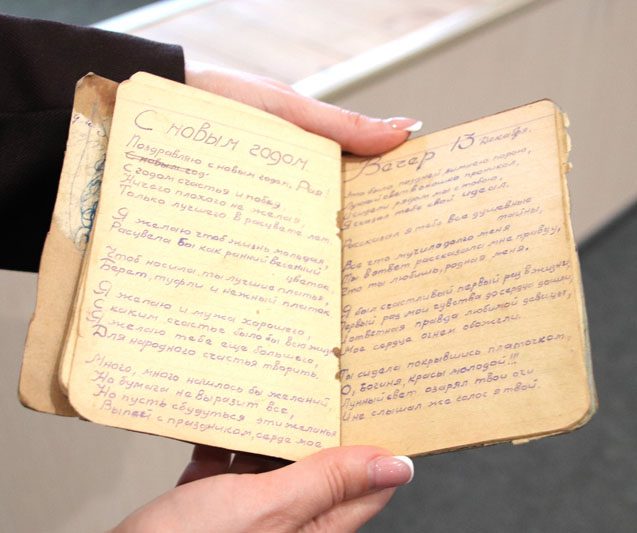 С новым годом.
Поздравляю с новым годом, Рая!
С новым год.
С годом счастья и побед
Ничего плохого не желая,
Только лучшего в расцвете лет.
Я желаю чтоб жизнь молодая,
Расцвела бы как ранний весений
цветок,
Чтоб носила ты лучшие платья,
Берет, туфли и нежный платок
Я желаю и мужа хорошего,
С каким счастье было бы всю жизнь
Я желаю тебе еще большего,
Для народного счастья творить.
Много, много нашлось бы желаний
Но бумага не выразит все,
Но пусть сбудуться эти желанья
Выпей с праздником, серде мое
Вечер 13 Декабря.
Это было поздней зимнею порою,
Лунный свет в окошко проникал,
сидели рядом мы с тобою,
Я сказал тебе свой идеал.
Рассказал я тебе все душевные
тайны,
Все что мучило долго меня
Ты в ответ рассказала мне правду,
Что ты любишь, родная меня.
Я был счастливый первый раз в жизни,
Первый раз мои чувства до сердца дошли,
ответная правда любимой девицы,
Мое сердце огнем обожгли.
Ты сидела покрывшись платочком,
О, Богиня, красы молодой!!!
Лунный свет озарял твои очи
И не слышал же голос я твой.